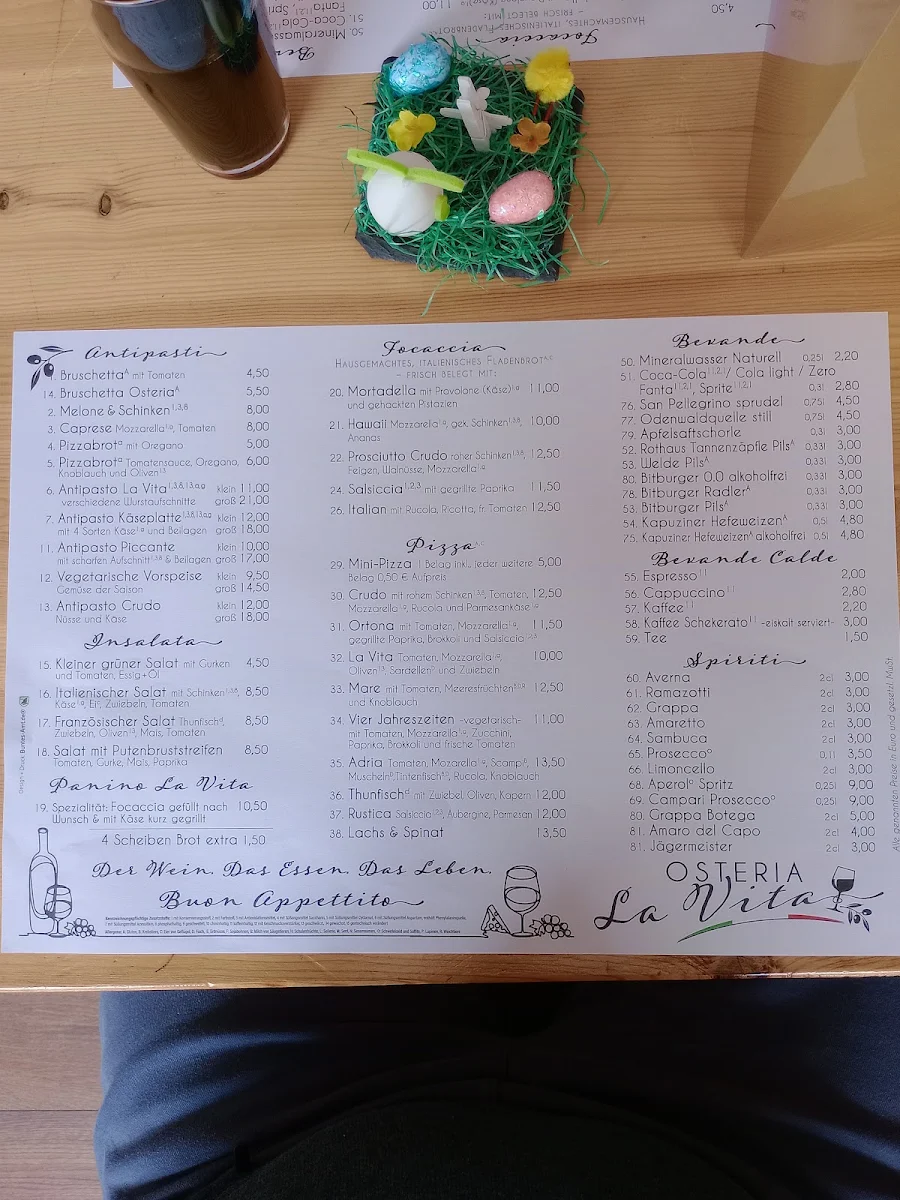 Antipasti
1. Bruschetta^A mit Tomaten 4,50
14. Bruschetta Osteria^A 5,50
2. Melone & Schinken 1,3,8 8,00
3. Caprese Mozzarella 1,g, Tomaten 8,00
4. Pizzabrot^a mit Oregano 5,00
5. Pizzabrot^a Tomatensauce, Oregano, 6,00
Knoblauch und Oliven
6. Antipasto La Vita klein 11,00
verschiedene Wurstaufschnitte groß 21,00
7. Antipasto Käseplatte klein 12,00
mit 4 Sorten Käse und Beilagen groß 18,00
11. Antipasto Piccante klein 10,00
mit scharfen Aufschnitt & Beilagen groß 17,00
12. Vegetarische Vorspeise klein 9,50
Gemüse der Saison groß 14,50
13. Antipasto Crudo klein 12,00
Nüsse und Käse groß 18,00
Insalata
15. Kleiner grüner Salat mit Gurken 4,50
und Tomaten, Essig+Öl
16. Italienischer Salat mit Schinken 8,50
Käse, Ei, Zwiebeln, Tomaten
17. Französischer Salat Thunfisch, 8,50
Zwiebeln, Oliven, Mais, Tomaten
18. Salat mit Putenbruststreifen 8,50
Tomaten, Gurke, Mais, Paprika
Panino La Vita
19. Spezialität: Focaccia gefüllt nach 10,50
Wunsch & mit Käse kurz gegrillt
4 Scheiben Brot extra 1,50
Focaccia
Hausgemachtes, italienisches Fladenbrot
– frisch belegt mit:
20. Mortadella mit Provolone (Käse) 11,00
und gehackten Pistazien
21. Hawaii Mozzarella, gek. Schinken, 10,00
Ananas
22. Prosciutto Crudo roher Schinken, 12,50
Feigen, Walnüsse, Mozzarella
24. Salsiccia 1,2,3 mit gegrillte Paprika 11,50
26. Italian mit Rucola, Ricotta, fr. Tomaten 12,50
Pizza
29. Mini-Pizza 1 Belag inkl. jeder weitere 5,00
Belag 0,50 € Aufpreis
30. Crudo mit rohem Schinken, Tomaten, 12,50
Mozzarella, Rucola und Parmesankäse
31. Ortona mit Tomaten, Mozzarella, 11,50
gegrillte Paprika, Brokkoli und Salsiccia
32. La Vita Tomaten, Mozzarella, 10,00
Oliven, Sardellen und Zwiebeln
33. Mare mit Tomaten, Meeresfrüchten 12,50
und Knoblauch
34. Vier Jahreszeiten -vegetarisch- 11,00
mit Tomaten, Mozzarella, Zucchini,
Paprika, Brokkoli und frische Tomaten
35. Adria Tomaten, Mozzarella, Scampi, 13,50
Muscheln, Tintenfisch, Rucola, Knoblauch
36. Thunfisch mit Zwiebel, Oliven, Kapern 12,00
37. Rustica Salsiccia, Aubergine, Parmesan 12,00
38. Lachs & Spinat 13,50
Bevande
50. Mineralwasser Naturell 0,25l 2,20
51. Coca-Cola 1,1,2,1/ Cola light / Zero
Fanta 1,1,2,1, Sprite 1,1,2,1 0,3l 2,80
76. San Pellegrino sprudel 0,75l 4,50
77. Odenwaldquelle still 0,75l 4,50
79. Apfelsaftschorle 0,3l 3,00
52. Rothaus Tannenzäpfle Pils^A 0,33l 3,00
53. Welde Pils^A 0,33l 3,00
80. Bitburger 0.0 alkoholfrei 0,33l 3,00
78. Bitburger Radler^A 0,33l 3,00
53. Bitburger Pils^A 0,33l 3,00
54. Kapuziner Hefeweizen^A 0,5l 4,80
75. Kapuziner Hefeweizen^A alkoholfrei 0,5l 4,80
Bevande Calde
55. Espresso 11 2,00
56. Cappuccino 11 2,80
57. Kaffee 11 2,20
58. Kaffee Schekerato 11 -eiskalt serviert- 3,00
59. Tee 1,50
Spiriti
60. Averna 2cl 3,00
61. Ramazotti 2cl 3,00
62. Grappa 2cl 3,00
63. Amaretto 2cl 3,00
64. Sambuca 2cl 3,00
65. Prosecco° 0,1l 3,50
66. Limoncello 2cl 3,00
68. Aperol° Spritz 0,25l 9,00
69. Campari Prosecco° 0,25l 9,00
80. Grappa Botega 2cl 5,00
81. Amaro del Capo 2cl 4,00
81. Jägermeister 2cl 3,00
Alle genannten Preise in Euro und gesetzl. MwSt.
Der Wein. Das Essen. Das Leben.
Buon Appettito
OSTERIA
La Vita
Focaccia
Hausgemachtes, italienisches Fladenbrot
– frisch belegt mit:
11,00
4,50
50. Mineralwasse
51. Coca-Cola
Fanta, Spri